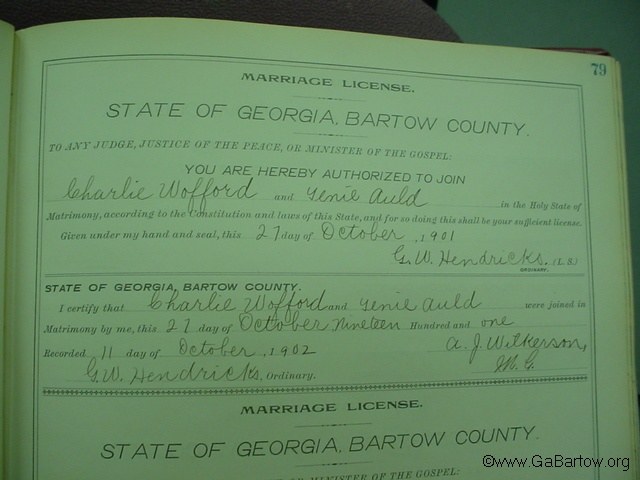 79
MARRIAGE LICENSE.
STATE OF GEORGIA, BARTOW COUNTY.
TO ANY JUDGE, JUSTICE OF THE PEACE, OR MINISTER OF THE GOSPEL:
YOU ARE HEREBY AUTHORIZED TO JOIN
Charlie Wofford and Genie Auld in the Holy State of
Matrimony, according to the Constitution and laws of this State, and for so doing this shall be your sufficient license.
Given under my hand and seal, this 27 day of October, 1901
G. W. Hendricks. (L. S.)
ORDINARY.
STATE OF GEORGIA, BARTOW COUNTY.
I certify that Charlie Wofford and Genie Auld were joined in
Matrimony by me, this 27 day of October Nineteen Hundred and one
Recorded 11 day of October, 1902 A. J. Wilkerson,
G. W. Hendricks, Ordinary. M. G.
MARRIAGE LICENSE.
STATE OF GEORGIA, BARTOW COUNTY.
OR MINISTER OF THE GOSPEL:
©www.GaBartow.org